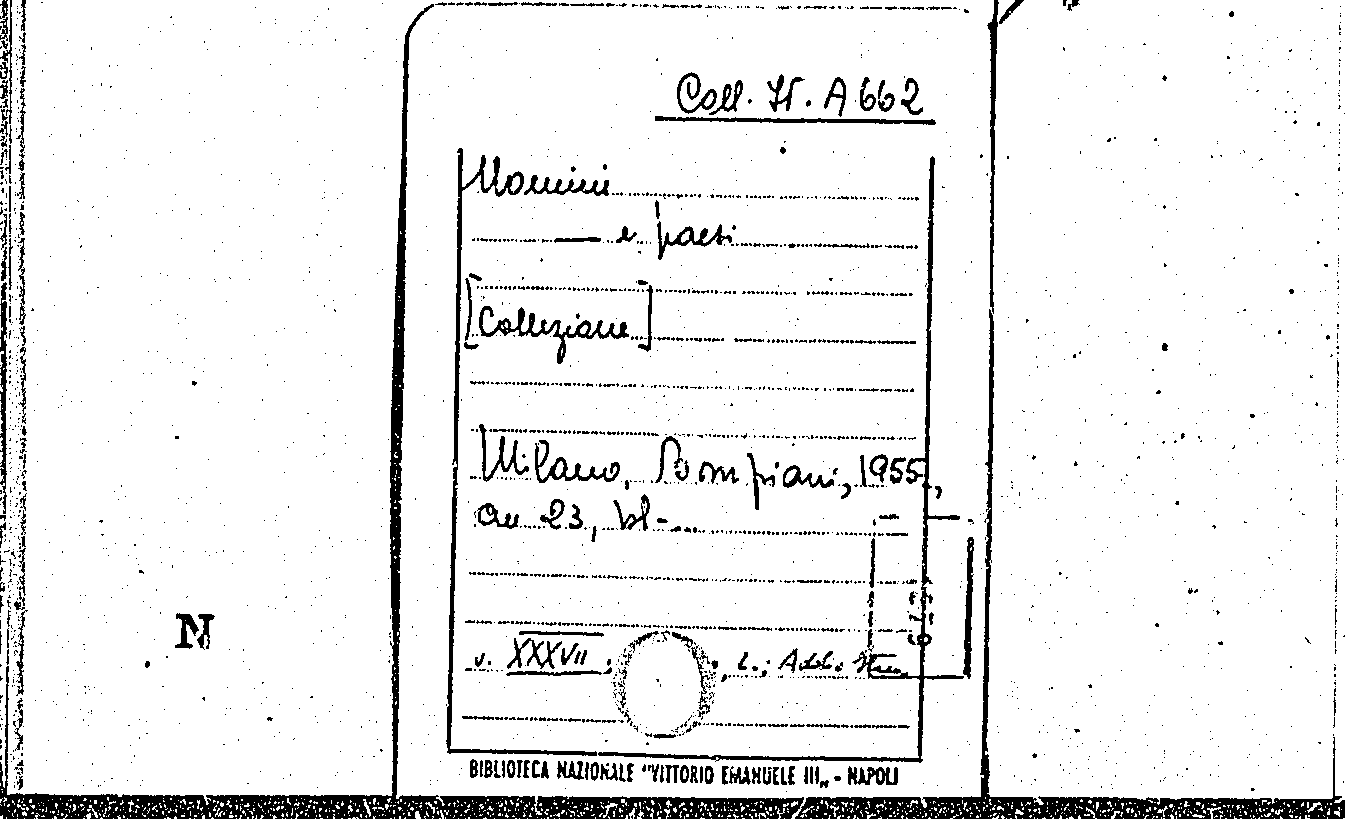 Coll. It. A 662
Uomini
— e paesi
[Collezione]
Milano, Bompiani, 1955,
in 23, vl-...
N
v. XXXVII ; , L.; Addo.
BIBLIOTECA NAZIONALE "VITTORIO EMANUELE III„ - NAPOLI